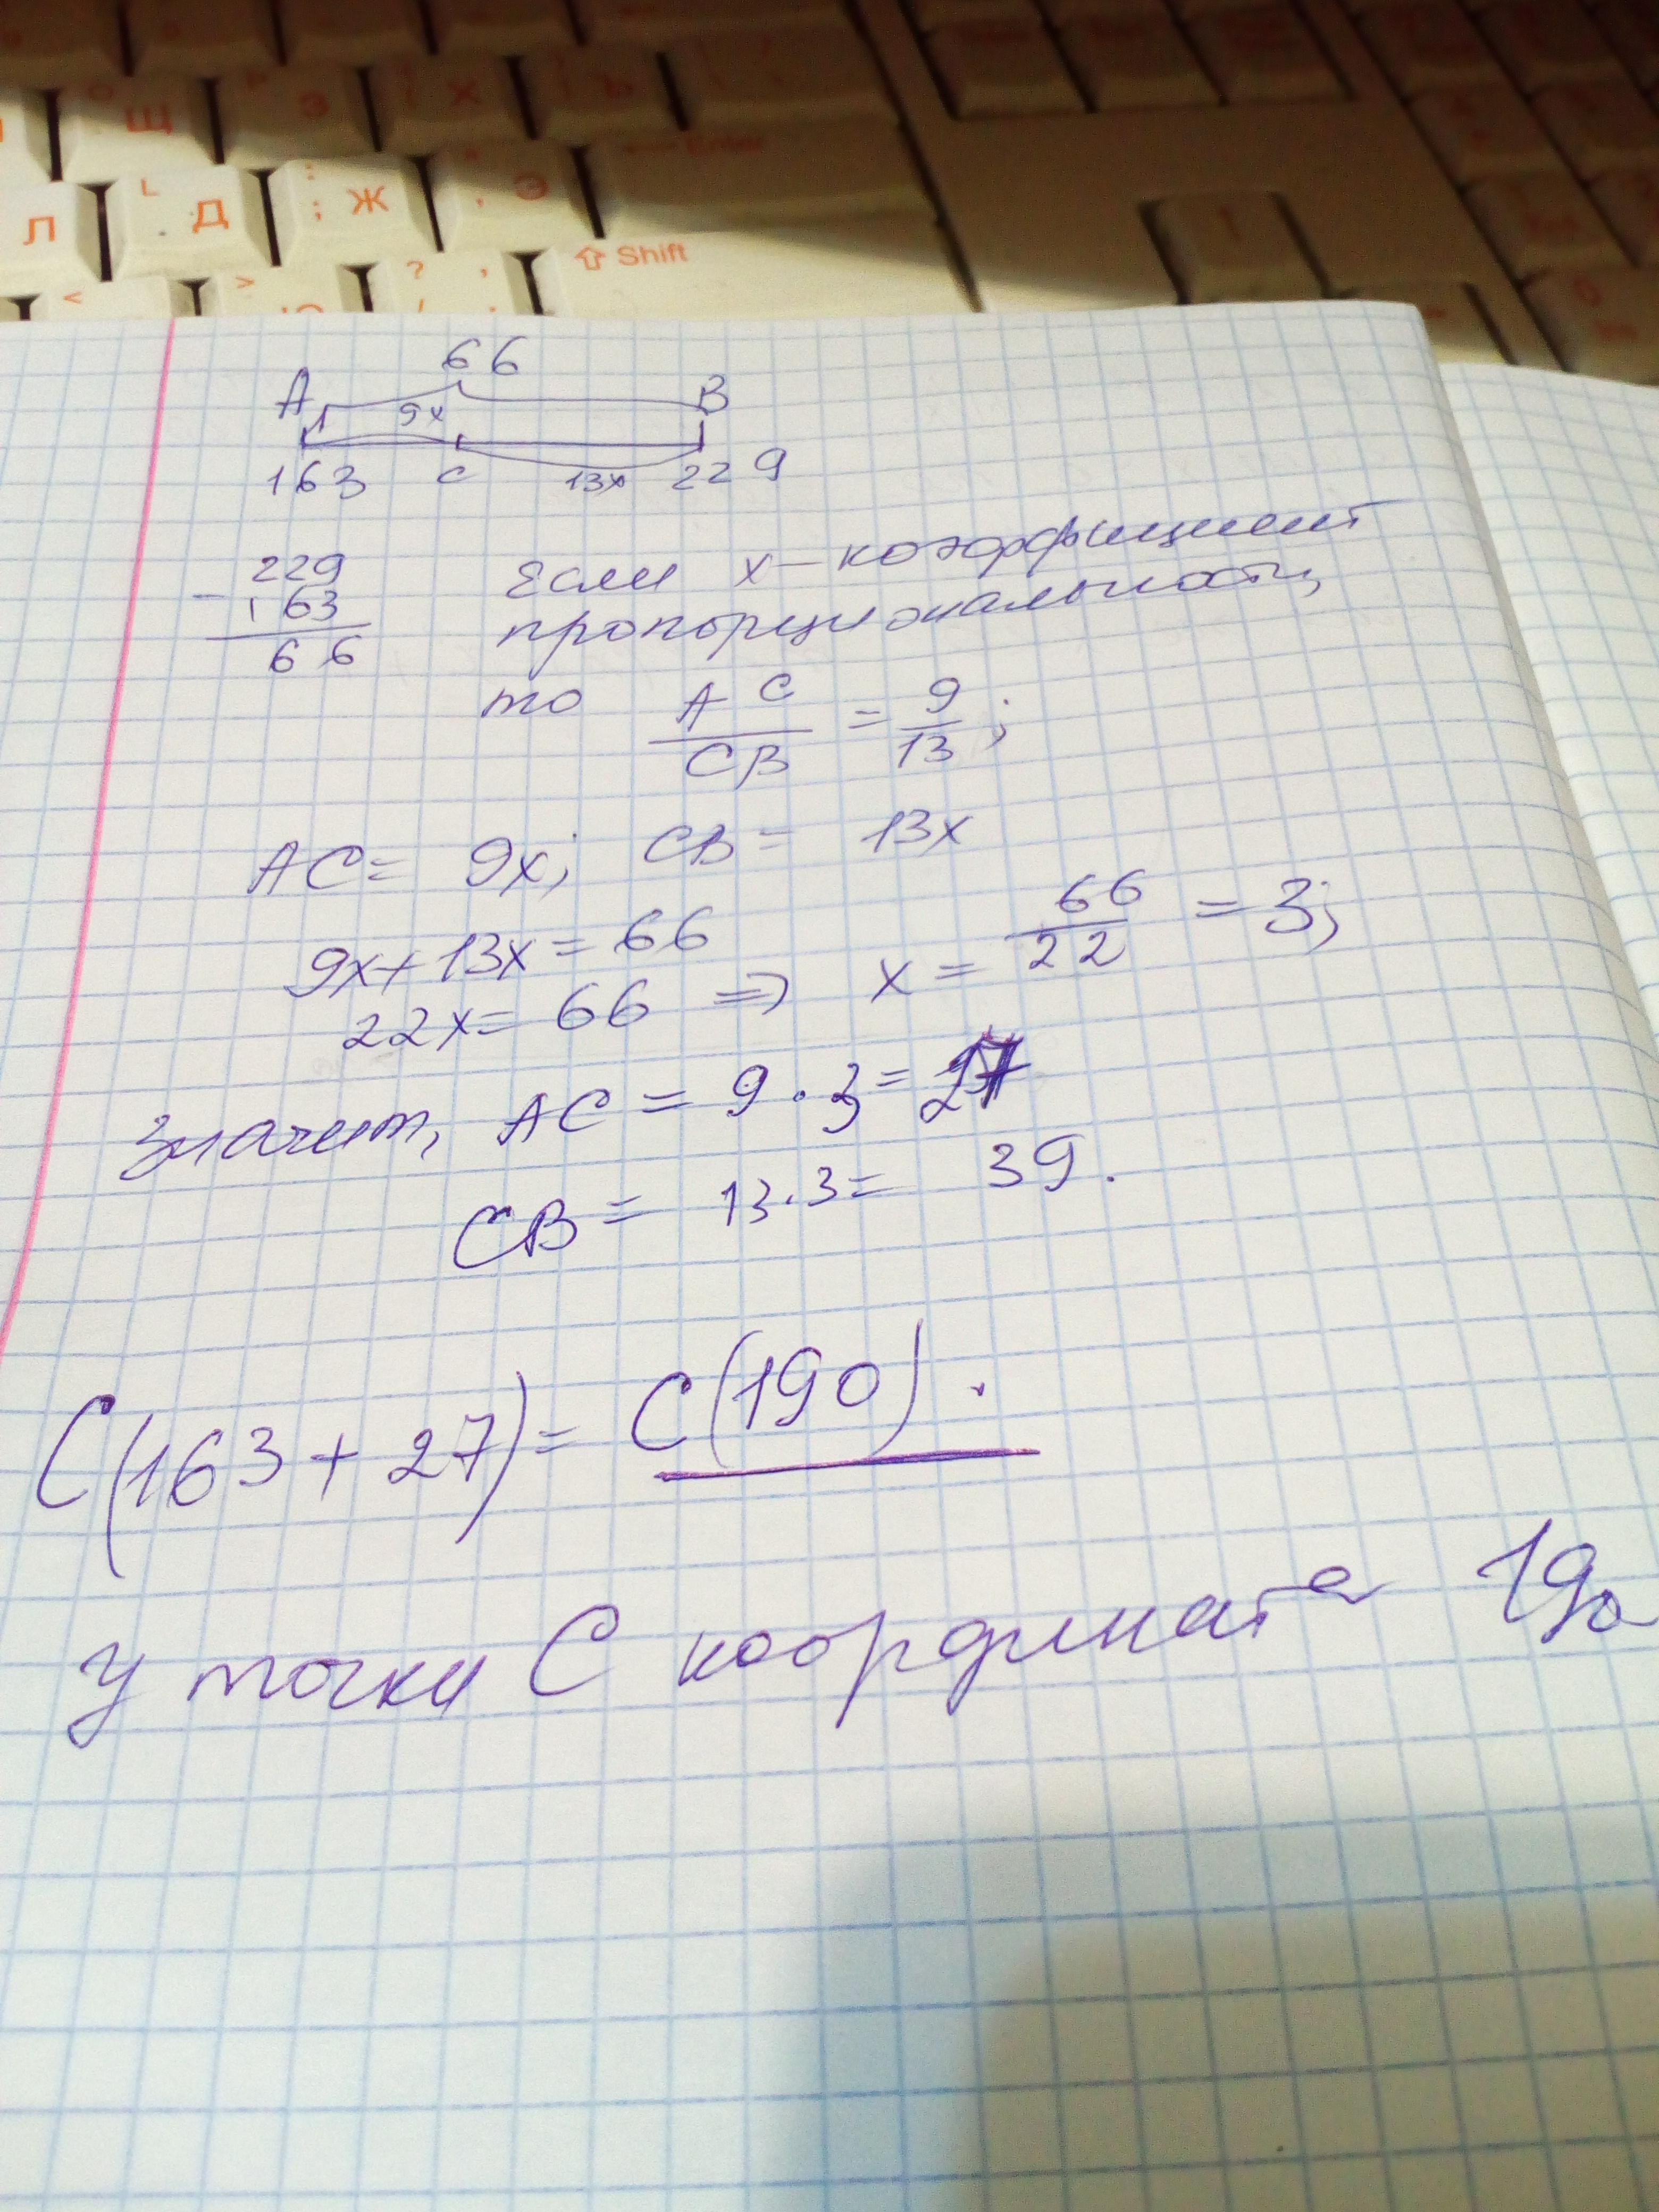 Щ З Х Ъ
Enter
Л L Д : ; Ж Э
Shift
< > ? /
66
A 9x B
163 C 13x 229
229
- 163
66
Если x - коэффициент
пропорциональности,
то AC/CB = 9/13;
AC = 9x; CB = 13x
9x + 13x = 66
22x = 66 => x = 66/22 = 3;
значит, AC = 9 · 3 = 27
CB = 13 · 3 = 39.
C(163 + 27) = C(190).
У точки C координата 190